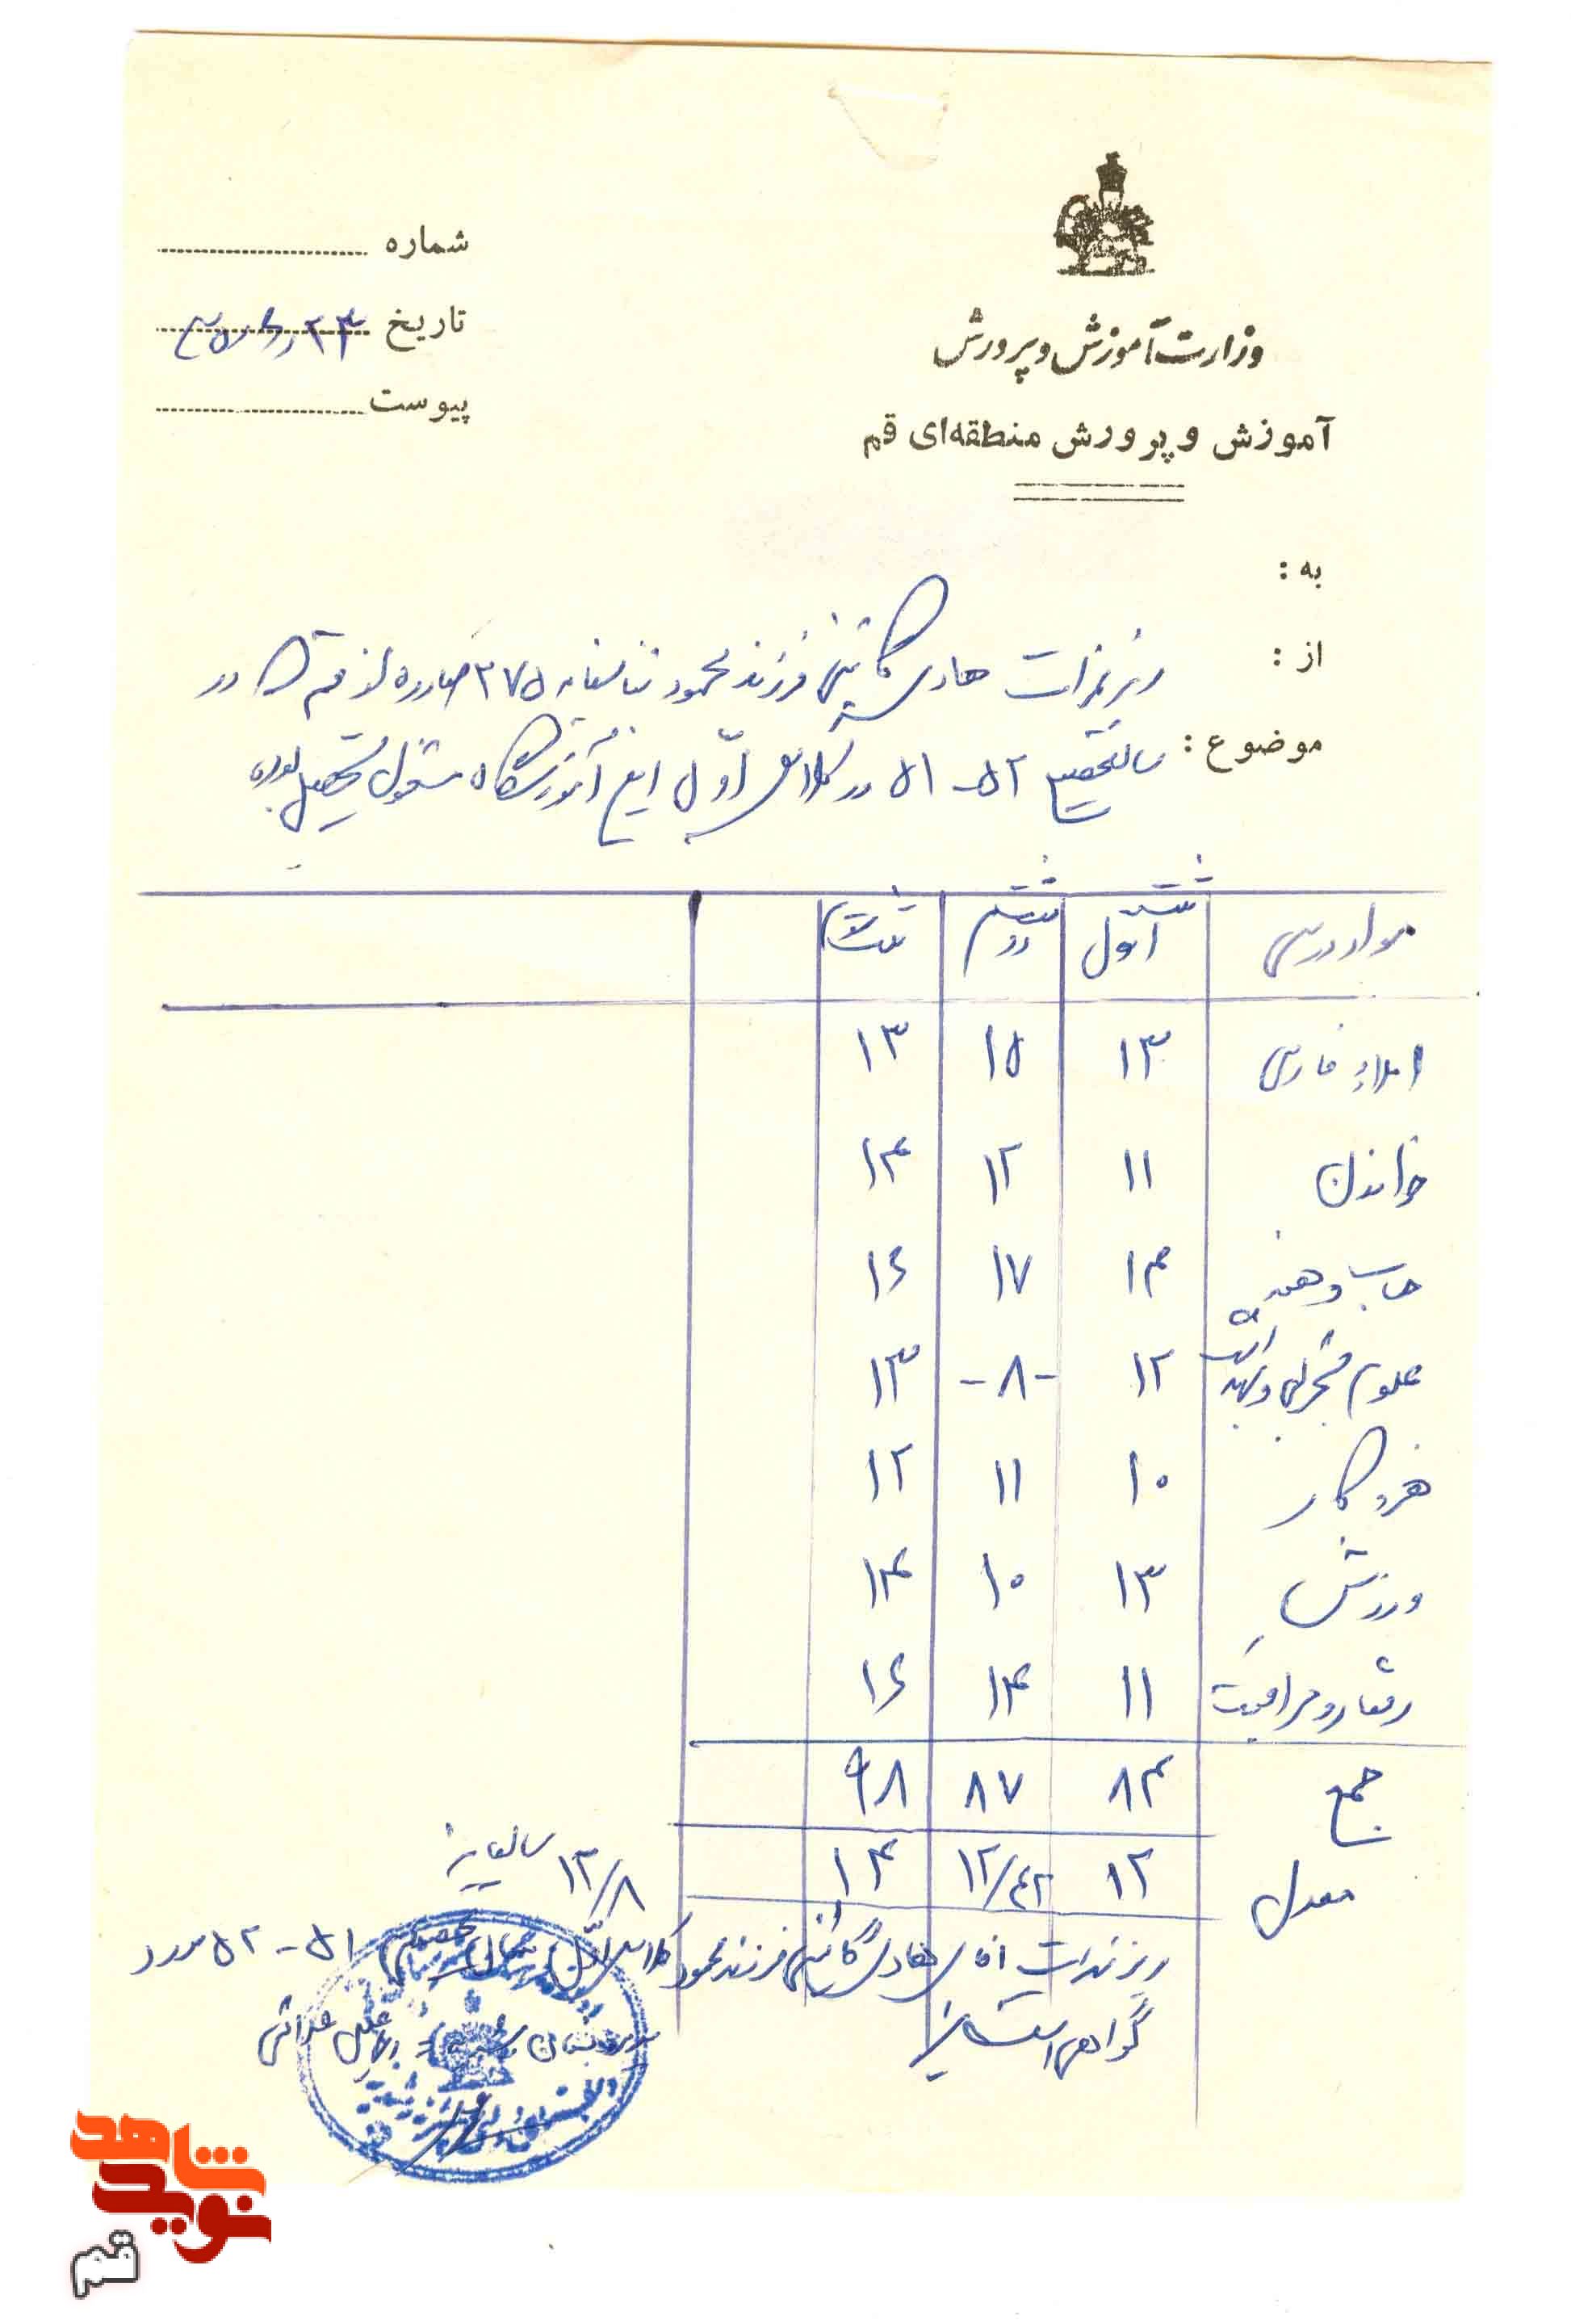 وزارت آموزش و پرورش
آموزش و پرورش منطقه‌ای قم
شماره
تاریخ
پیوست
به :
از :
ریز نمرات هادی کاشی فرزند محمود شناسنامه ۳۷۵ صادره از قم که در
موضوع :
سال تحصیلی ۵۲-۵۱ در کلاس اوّل این آموزشگاه مشغول تحصیل بوده
مواد درسی ثلث اول ثلث دوم ثلث سوم
املاء فارسی ۱۳ ۱۵ ۱۳
خواندن ۱۱ ۱۲ ۱۴
حساب و هندسه ۱۴ ۱۷ ۱۶
علوم تجربی و بهداشت ۱۲ -۸- ۱۳
هنر و کار ۱۰ ۱۱ ۱۲
ورزش ۱۳ ۱۰ ۱۴
رفتار و مراقبت ۱۱ ۱۴ ۱۶
جمع ۸۴ ۸۷ ۹۸
معدل ۱۲ ۱۲/۴۲ ۱۴
۱۲/۸ سالیانه
ریز نمرات آقای هادی کاشی فرزند محمود کلاس اوّل سال تحصیلی ۵۲-۵۱ مورد
گواهی است
شاهد
نوید
قم